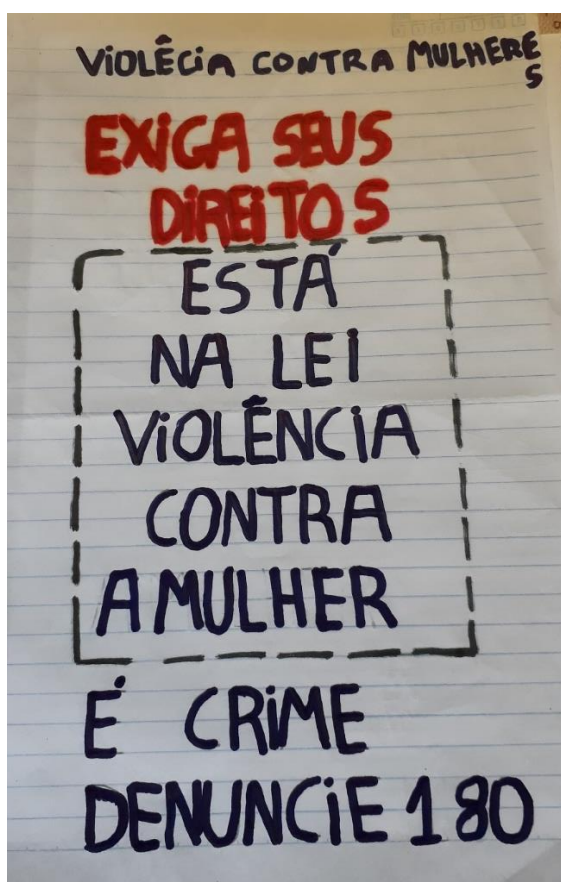 VIOLÊCIA CONTRA MULHERE
S
EXIGA SEUS
DIREITOS
ESTÁ
NA LEI
VIOLÊNCIA
CONTRA
A MULHER
É CRIME
DENUNCIE 180